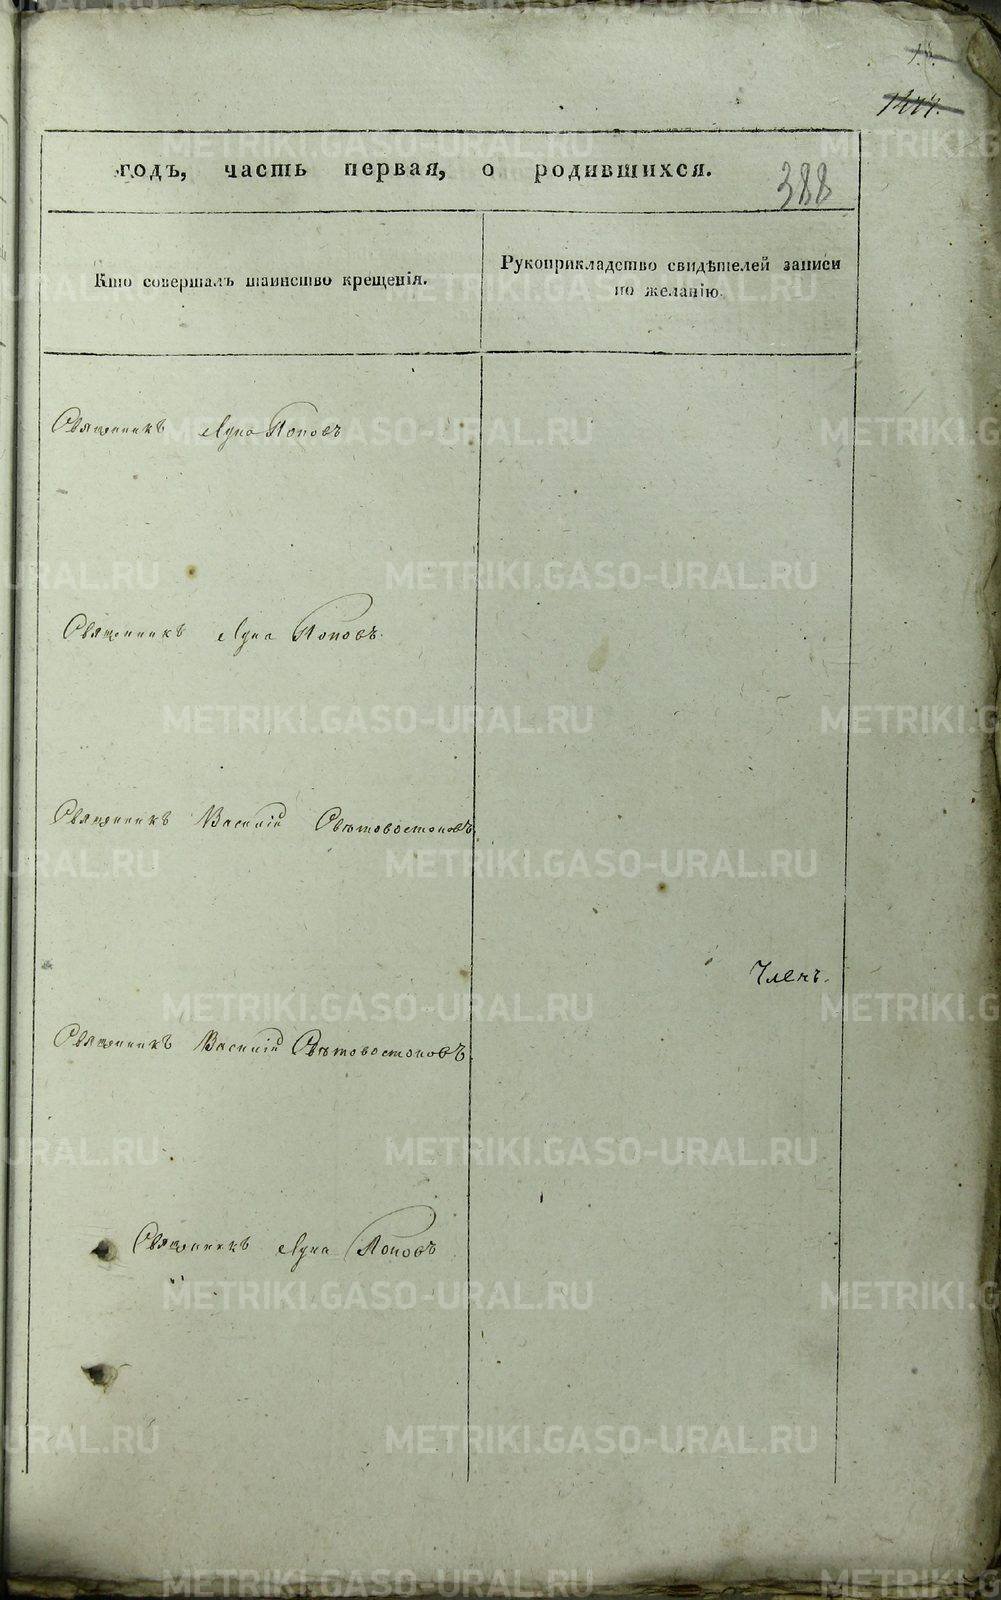 388
годъ, часть первая, о родившихся.
Кто совершалъ таинство крещенія.
Рукоприкладство свидѣтелей записи
по желанію.
Священникъ Лука Поповъ
Священникъ Лука Поповъ.
Священникъ Василій Свѣтовостоковъ
Членъ.
Священникъ Василій Свѣтовостоковъ
Священникъ Лука Поповъ
METRIKI.GASO-URAL.RU